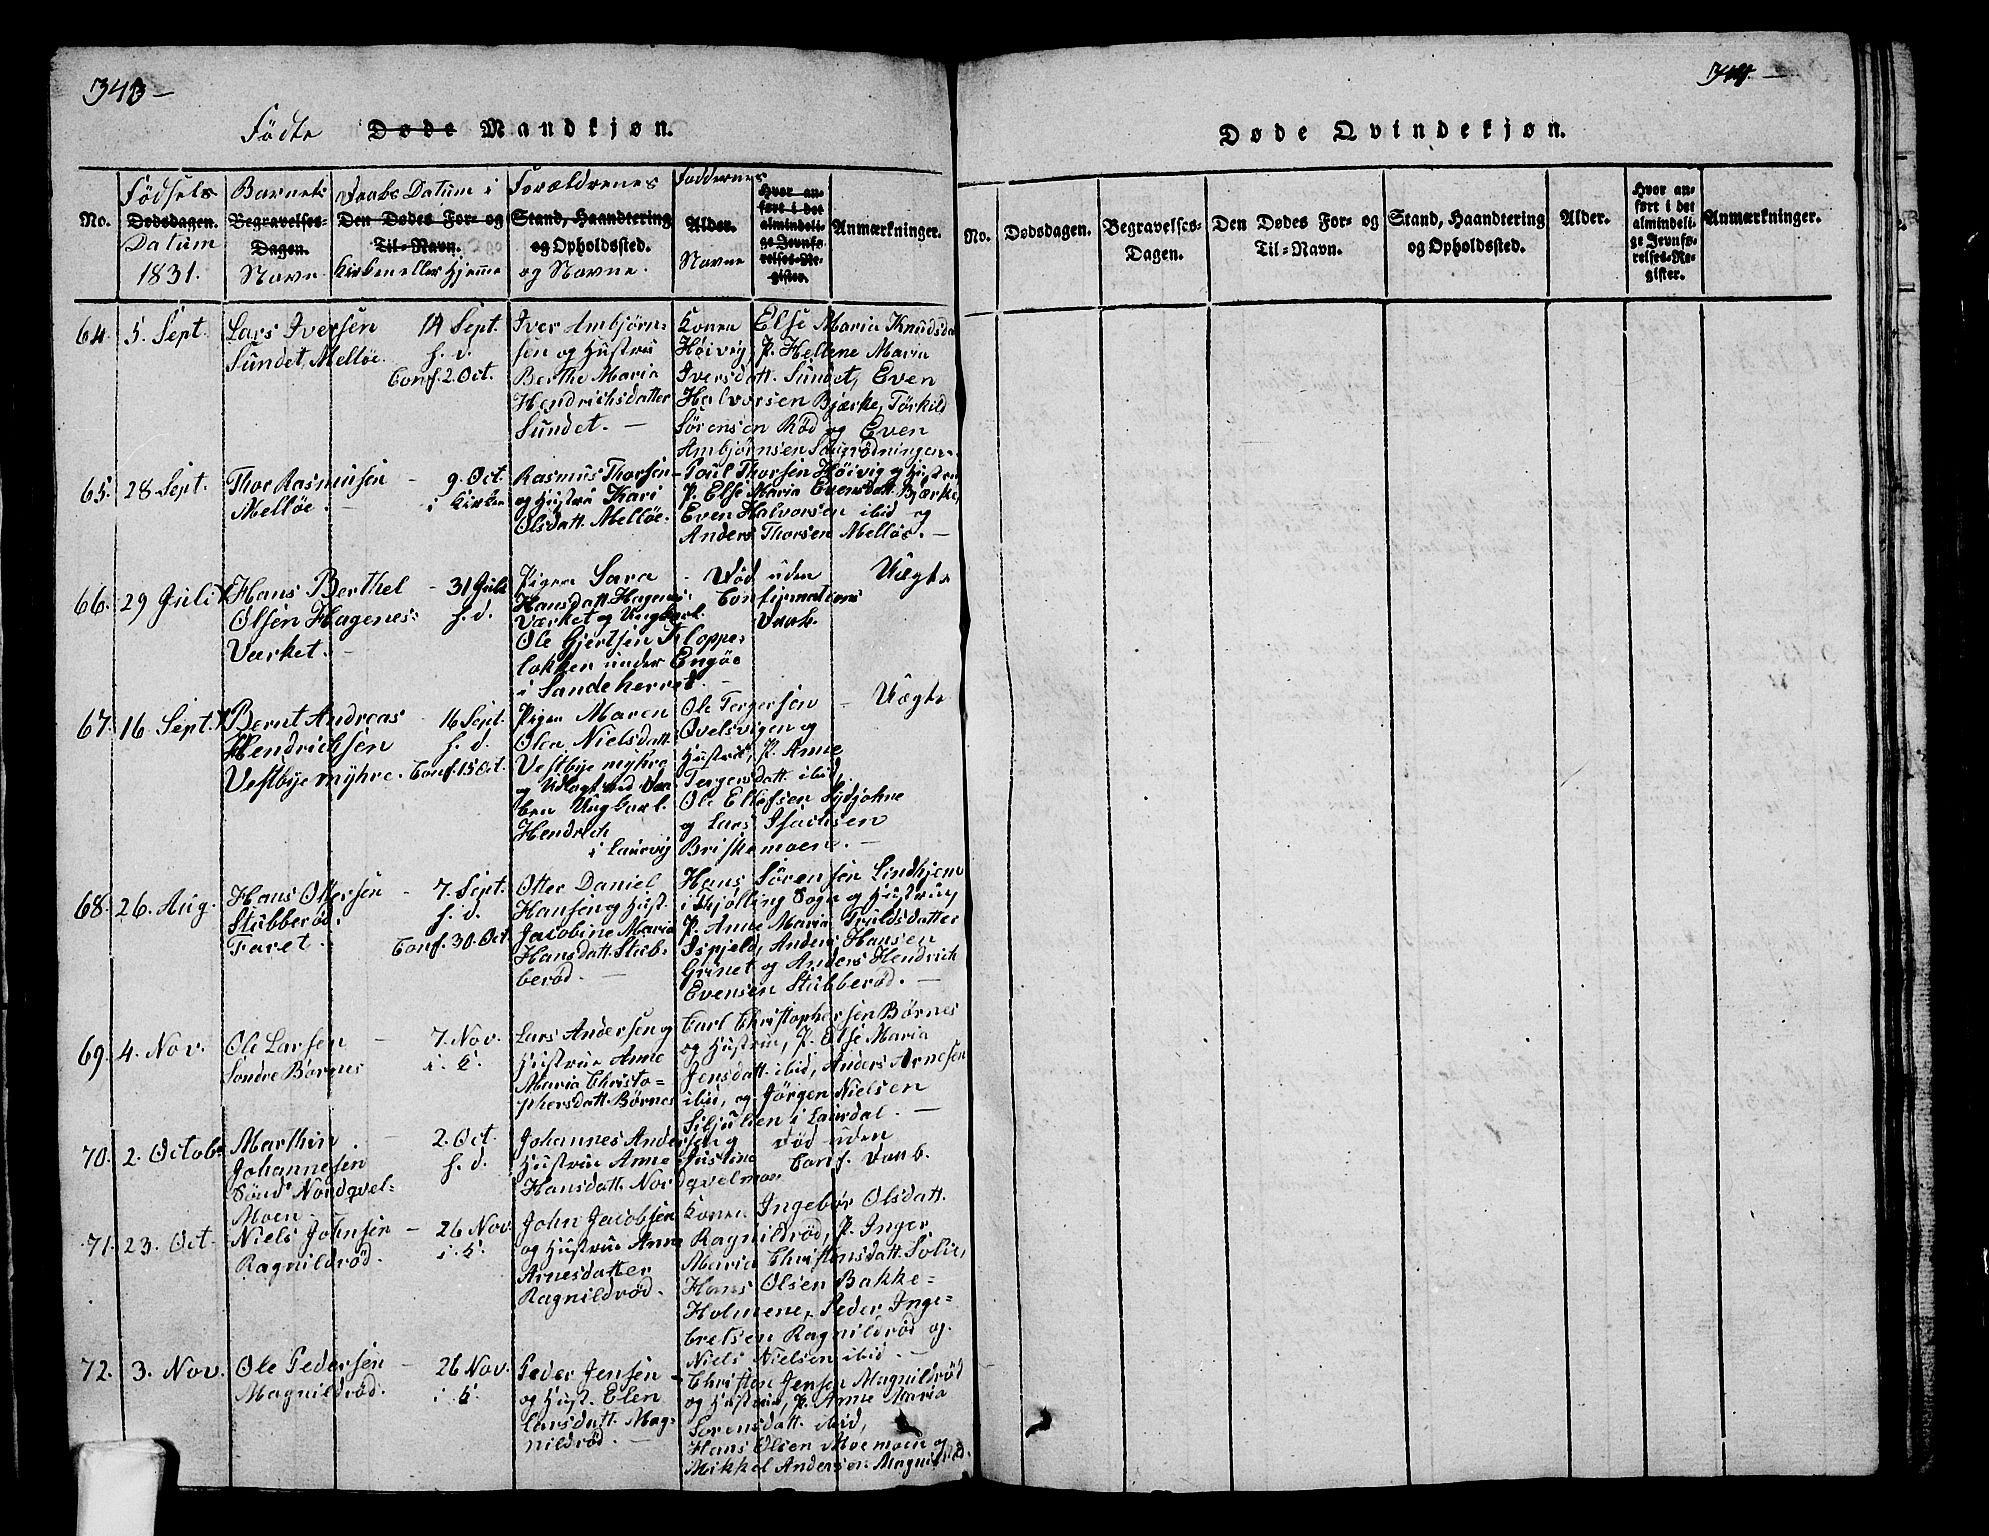 343 –
Født Døde Mandkjøn.
No.
Fødsels
Dødsdagen.
Datum
1831.
Barnets
Begravelses-
Dagen.
Navn
Daabs Datum i
Den Dødes For- og
Til-Navn.
Kirken eller Hjemme
Forældrenes
Stand, Haandtering
og Opholdssted.
og Navne.
Faddernes
Alder.
Navne
Hvor an-
ført i det
almindeli-
ge Jevnfø-
relses-Re-
gister.
Anmærkninger.
64. 5. Sept.
Lars Iversen
Sundet, Melløe.
14 Sept.
h. d.
Conf. 2. Oct.
Iver Ambjørn-
sen og Hustru
Berthe Maria
Hendrichsdatter
Sundet. –
Konen Else Maria Knudsda
Høivig, P. Hellene Maria
Iversdatt. Sundet, Even
Halvorsen Bjærke, Tørkild
Sørensen Rød og Even
Ambjørnsen
65. 28 Sept.
Thor Rasmusen
Melløe. –
9. Oct.
i Kirken
Rasmus Thorsen
og Hustru Kari
Olsdatt. Melløe.
Poul Thorsen Høivig og Hustru
P. Else Maria Evensdatt. Bjærke,
Even Halvorsen ibid og
Anders Thorsen Melløe. –
66. 29 Juli
Hans Berthel
Olsen Hagenes-
Værket. –
– 31 Juli
h. d.
Pigen Sara
Hansdatt. Hagenes-
Værket og Ungkarl
Ole Gjertsen Kloppe-
løkken under Engøe
i Sandeherred. –
– Død uden
Confirmations
Daab.
Uægte
67. 16 Sept.
Bernt Andreas
Hendrichsen
Vestbye myhre.
– 16 Sept.
h. d.
Conf. 15 Oct.
Pigen Maren
Olea Nielsdatt.
Vestbye myhre
og Udlagt ved Daa
ben Ungkarl
Hendrich
i Laurvig
Ole Tergersen
Ovelsvigen og
Hustru, P. Anne
Tergersdatt. ibid,
Ole Ellefsen Sydjohne
og Lars Isachsen
Briskemoen. –
– Uægte
68. 26. Aug.
Hans Ottersen
Stubberød.
Faret. –
– 7. Sept.
h. d.
Conf. 30. Oct.
Otter Daniel
Hansen og Hust.
Jacobine Maria
Hansdatt. Stub-
berød. –
Hans Sørensen Lindhjem
i Thjølling Sogn og Hustru
P. Anne Maria Truldsdatter
Ispjeld, Anders Hansen
Grinet og Anders Hendrich
Evensen Stubberød. –
69. 4. Nov.
Ole Larsen
Søndre Børnes
– 7. Nov.
i. K.
Lars Andersen og
Hustru Anne
Maria Christo-
phersdatt. Børnes
Carl Christophersen Børnes
og Hustru, P. Else Maria
Jensdatt. ibid, Anders Arnesen
ibid, og Jørgen Nielsen
Siljulien i Laurdal. –
70. 2. Octob.
Marthin
Johannesen
Sønd. Nordqvel-
Moen. –
– 2. Oct.
h. d.
Johannes Andersen og
Hustru Anne Justine
Hansdatt. Nordqvelmoen
Død uden
Conf. Daab.
71. 23. Oct.
Niels Johnsen
Ragnildrød.
– 26 Nov.
i. K.
John Jacobsen
og Hustru Anne
Arnesdatter
Ragnildrød. –
Konen Ingebor Olsdatt.
Ragnildrød, P. Inger
Maria Christensdatt. Solie,
Hans Olsen Bakke-
Holmene, Peder Inge-
bretsen Ragnildrød og
Niels Nielsen ibid. –
72. 3. Nov.
Ole Pedersen
Magnildrød.
– 26 Nov.
i. K.
Peder Jensen
og Hust. Elen
Larsdatt. Mag-
nildrød. –
Christen Jensen Magnildrød
og Hustru, P. Anne Maria
Sørensdatt. ibid,
Hans Olsen Moemoen og
Mikkel Andersen Magnildrød.
Døde Qvindekjøn.
No.
Dødsdagen.
Begravelses-
Dagen.
Den Dødes For- og
Til-Navn.
Stand, Haandtering
og Opholdssted.
Alder.
Hvor an-
ført i det
almindeli-
ge Jevnfø-
relses-Re-
gister.
Anmærkninger.